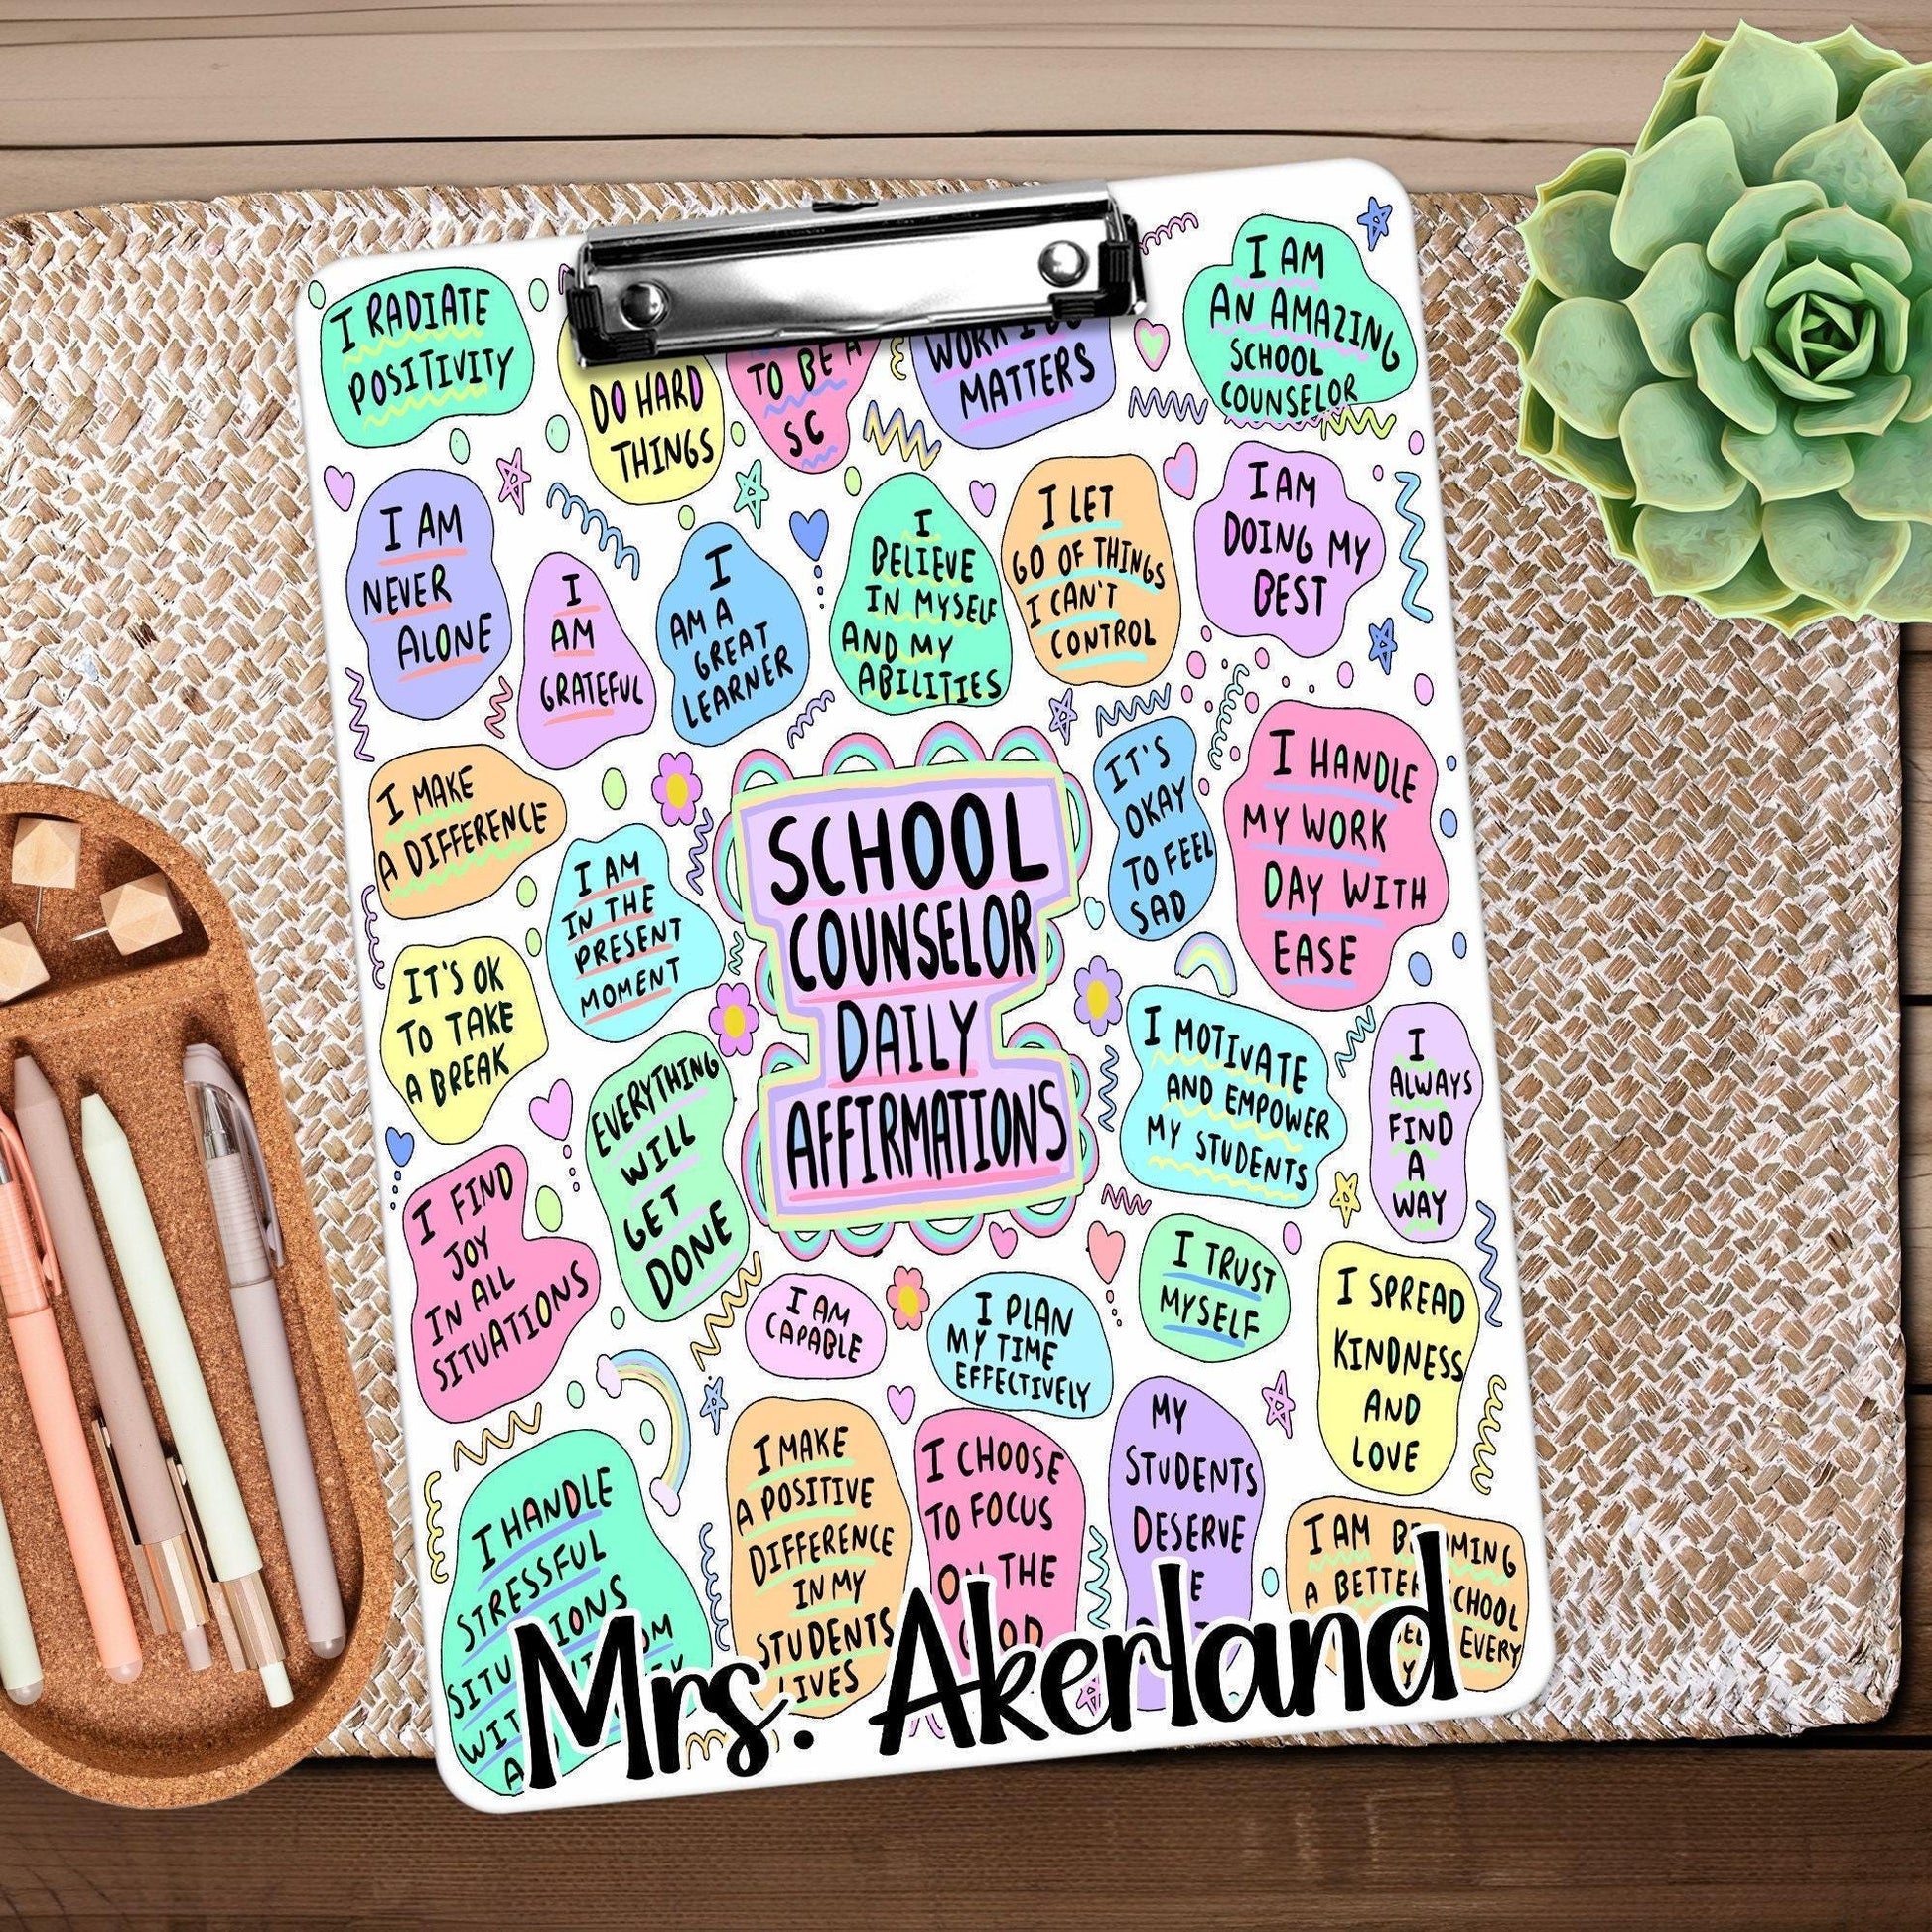 I RADIATE
POSITIVITY
DO HARD
THINGS
TO BE A
SC
WORK I DO
MATTERS
I AM
AN AMAZING
SCHOOL
COUNSELOR
I AM
NEVER
ALONE
I
AM
GRATEFUL
I
AM A
GREAT
LEARNER
I
BELIEVE
IN MYSELF
AND MY
ABILITIES
I LET
GO OF THINGS
I CAN'T
CONTROL
I AM
DOING MY
BEST
I MAKE
A DIFFERENCE
I AM
IN THE
PRESENT
MOMENT
SCHOOL
COUNSELOR
DAILY
AFFIRMATIONS
IT'S
OKAY
TO FEEL
SAD
I HANDLE
MY WORK
DAY WITH
EASE
IT'S OK
TO TAKE
A BREAK
EVERYTHING
WILL
GET
DONE
I MOTIVATE
AND EMPOWER
MY STUDENTS
I
ALWAYS
FIND
A
WAY
I FIND
JOY
IN ALL
SITUATIONS
I AM
CAPABLE
I PLAN
MY TIME
EFFECTIVELY
I TRUST
MYSELF
I SPREAD
KINDNESS
AND
LOVE
I HANDLE
STRESSFUL
I MAKE
A POSITIVE
DIFFERENCE
IN MY
STUDENTS
LIVES
I CHOOSE
TO FOCUS
THE
MY
STUDENTS
DESERVE
I AM
A BETTER
EVERY
Mrs. Akerland